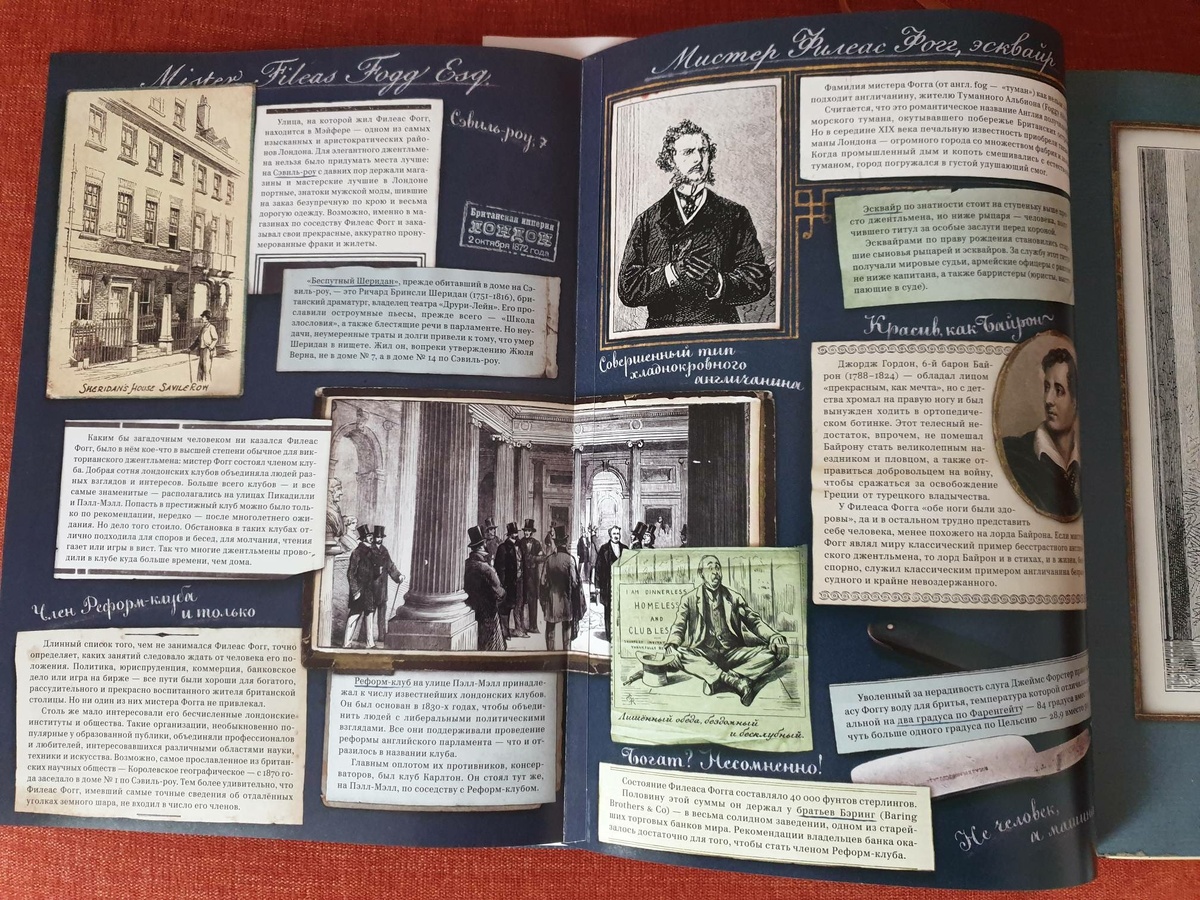 Mister Fileas Fogg Esq.
SHERIDAN'S HOUSE SAVILE ROW
Улица, на которой жил Филеас Фогг,
находится в Мэйфере — одном из самых
изысканных и аристократических райо-
нов Лондона. Для элегантного джентльме-
на нельзя было придумать места лучше:
на Сэвиль-роу с давних пор держали мага-
зины и мастерские лучшие в Лондоне
портные, знатоки мужской моды, шившие
на заказ безупречную по крою и весьма
дорогую одежду. Возможно, именно в ма-
газинах по соседству Филеас Фогг и зака-
зывал свои прекрасные, аккуратно прону-
мерованные фраки и жилеты.
Сэвиль-роу, 7
Британская империя
ЛОНДОН
2 октября 1872 года
«Беспутный Шеридан», прежде обитавший в доме на Сэ-
виль-роу, — это Ричард Бринсли Шеридан (1751–1816), бри-
танский драматург, владелец театра «Друри-Лейн». Его про-
славили остроумные пьесы, прежде всего — «Школа
злословия», а также блестящие речи в парламенте. Но неу-
дачи, неумеренные траты и долги привели к тому, что умер
Шеридан в нищете. Жил он, вопреки утверждению Жюля
Верна, не в доме № 7, а в доме № 14 по Сэвиль-роу.
Каким бы загадочным человеком ни казался Филеас
Фогг, было в нём кое-что в высшей степени обычное для вик-
торианского джентльмена: мистер Фогг состоял членом клу-
ба. Добрая сотня лондонских клубов объединяла людей раз-
ных взглядов и интересов. Больше всего клубов — и все
самые знаменитые — располагались на улицах Пикадилли
и Пэлл-Мэлл. Попасть в престижный клуб можно было толь-
ко по рекомендации, нередко — после многолетнего ожи-
дания. Но дело того стоило. Обстановка в таких клубах от-
лично подходила для споров и бесед, для молчания, чтения
газет или игры в вист. Так что многие джентльмены прово-
дили в клубе куда больше времени, чем дома.
Член Реформ-клуба
и только
Длинный список того, чем не занимался Филеас Фогг, точно
определяет, каких занятий следовало ждать от человека его по-
ложения. Политика, юриспруденция, коммерция, банковское
дело или игра на бирже — все пути были хороши для богатого,
рассудительного и прекрасно воспитанного жителя британской
столицы. Но ни один из них мистера Фогга не привлекал.
Столь же мало интересовали его бесчисленные лондонские
институты и общества. Такие организации, необыкновенно по-
пулярные у образованной публики, объединяли профессионалов
и любителей, интересовавшихся различными областями науки,
техники и искусства. Возможно, самое прославленное из британ-
ских научных обществ — Королевское географическое — с 1870 го-
да заседало в доме № 1 по Сэвиль-роу. Тем более удивительно, что
Филеас Фогг, имевший самые точные сведения об отдалённых
уголках земного шара, не входил в число его членов.
Реформ-клуб на улице Пэлл-Мэлл принадле-
жал к числу известнейших лондонских клубов.
Он был основан в 1830-х годах, чтобы объеди-
нить людей с либеральными политическими
взглядами. Все они поддерживали проведение
реформы английского парламента — что и от-
разилось в названии клуба.
Главным оплотом их противников, консер-
ваторов, был клуб Карлтон. Он стоял тут же,
на Пэлл-Мэлл, по соседству с Реформ-клубом.
Мистер Филеас Фогг, эсквайр
Совершенный тип
хладнокровного
англичанина
Фамилия мистера Фогга (от англ. fog — «туман») как
подходит англичанину, жителю Туманного Альбиона (Foggy
Считается, что это романтическое название Англия
морского тумана, окутывавшего побережье Британских
Но в середине XIX века печальную известность приобрели
маны Лондона — огромного города со множеством фабрик и
Когда промышленный дым и копоть смешивались с
туманом, город погружался в густой удушающий смог.
Эсквайр по знатности стоит на ступеньку выше
сто джентльмена, но ниже рыцаря — человека,
чившего титул за особые заслуги перед короной.
Эсквайрами по праву рождения становились
шие сыновья рыцарей и эсквайров. За службу этот
получали мировые судьи, армейские офицеры с
не ниже капитана, а также барристеры (юристы,
пающие в суде).
Красив, как Байрон
Джордж Гордон, 6-й барон Бай-
рон (1788–1824) — обладал лицом
«прекрасным, как мечта», но с дет-
ства хромал на правую ногу и был
вынужден ходить в ортопедиче-
ском ботинке. Этот телесный не-
достаток, впрочем, не помешал
Байрону стать великолепным на-
ездником и пловцом, а также от-
правиться добровольцем на войну,
чтобы сражаться за освобождение
Греции от турецкого владычества.
У Филеаса Фогга «обе ноги были здо-
ровы», да и в остальном трудно представить
себе человека, менее похожего на лорда Байрона. Если
Фогг являл миру классический пример бесстрастного
ского джентльмена, то лорд Байрон и в стихах, и в жизни,
спорно, служил классическим примером англичанина
судного и крайне невоздержанного.
I AM DINNERLESS
HOMELESS
AND
CLUBLESS
Лишённый обеда, бездомный
и бесклубный.
Богат? Несомненно!
Состояние Филеаса Фогга составляло 40 000 фунтов стерлингов.
Половину этой суммы он держал у братьев Бэринг (Baring
Brothers & Co) — в весьма солидном заведении, одном из старей-
ших торговых банков мира. Рекомендации владельцев банка ока-
залось достаточно для того, чтобы стать членом Реформ-клуба.
Уволенный за нерадивость слуга Джеймс Форстер
асу Фоггу воду для бритья, температура которой
альной на два градуса по Фаренгейту — 84 градуса
чуть больше одного градуса по Цельсию — 28,9 вместо
Не человек,
а машина